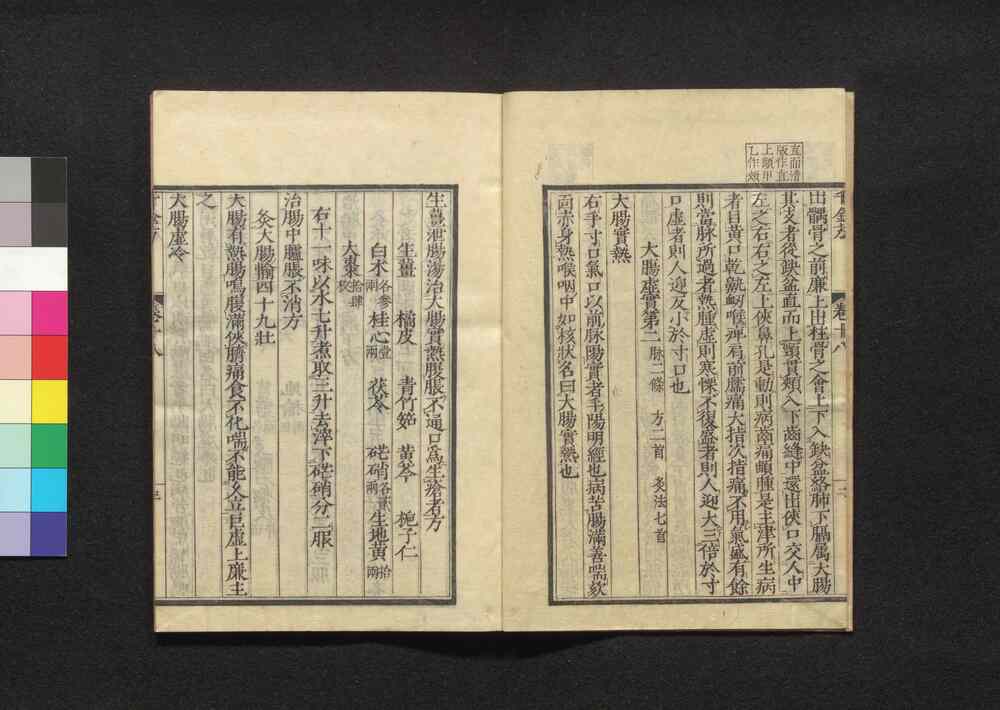 直而清
版作直
上頸甲
乙作頰
千金方 卷十八
出髃骨之前廉上出柱骨之會上下入缺盆絡肺下膈屬大腸
其支者從缺盆直而上頸貫頰入下齒縫中還出俠口交人中
左之右右之左上俠鼻孔是動則病齒痛䪼腫是主津所生病
者目黃口乾鼽衂喉痺肩前臑痛大指次指痛不用氣盛有餘
則當脉所過者熱腫虛則寒慄不復盛者則人迎大三倍於寸
口虛者則人迎反小於寸口也
大腸虛實第二 脉二條 方二首 灸法七首
大腸實熱
右手寸口氣口以前脉陽實者手陽明經也病苦腸滿善喘欬
面赤身熱喉咽中如核狀名曰大腸實熱也
生薑泄腸湯治大腸實熱腹脹不通口爲生瘡者方
生薑 橘皮 青竹筎 黄芩 梔子仁
白术各參兩 桂心壹兩 茯苓 硭硝各貳兩 生地黄拾兩
大棗拾肆枚
右十一味以水七升煮取三升去滓下硭硝分二服
治腸中臚脹不消方
灸大腸輸四十九壯
大腸有熱腸鳴腹滿俠臍痛食不化喘不能久立巨虛上廉主
之
大腸虛冷